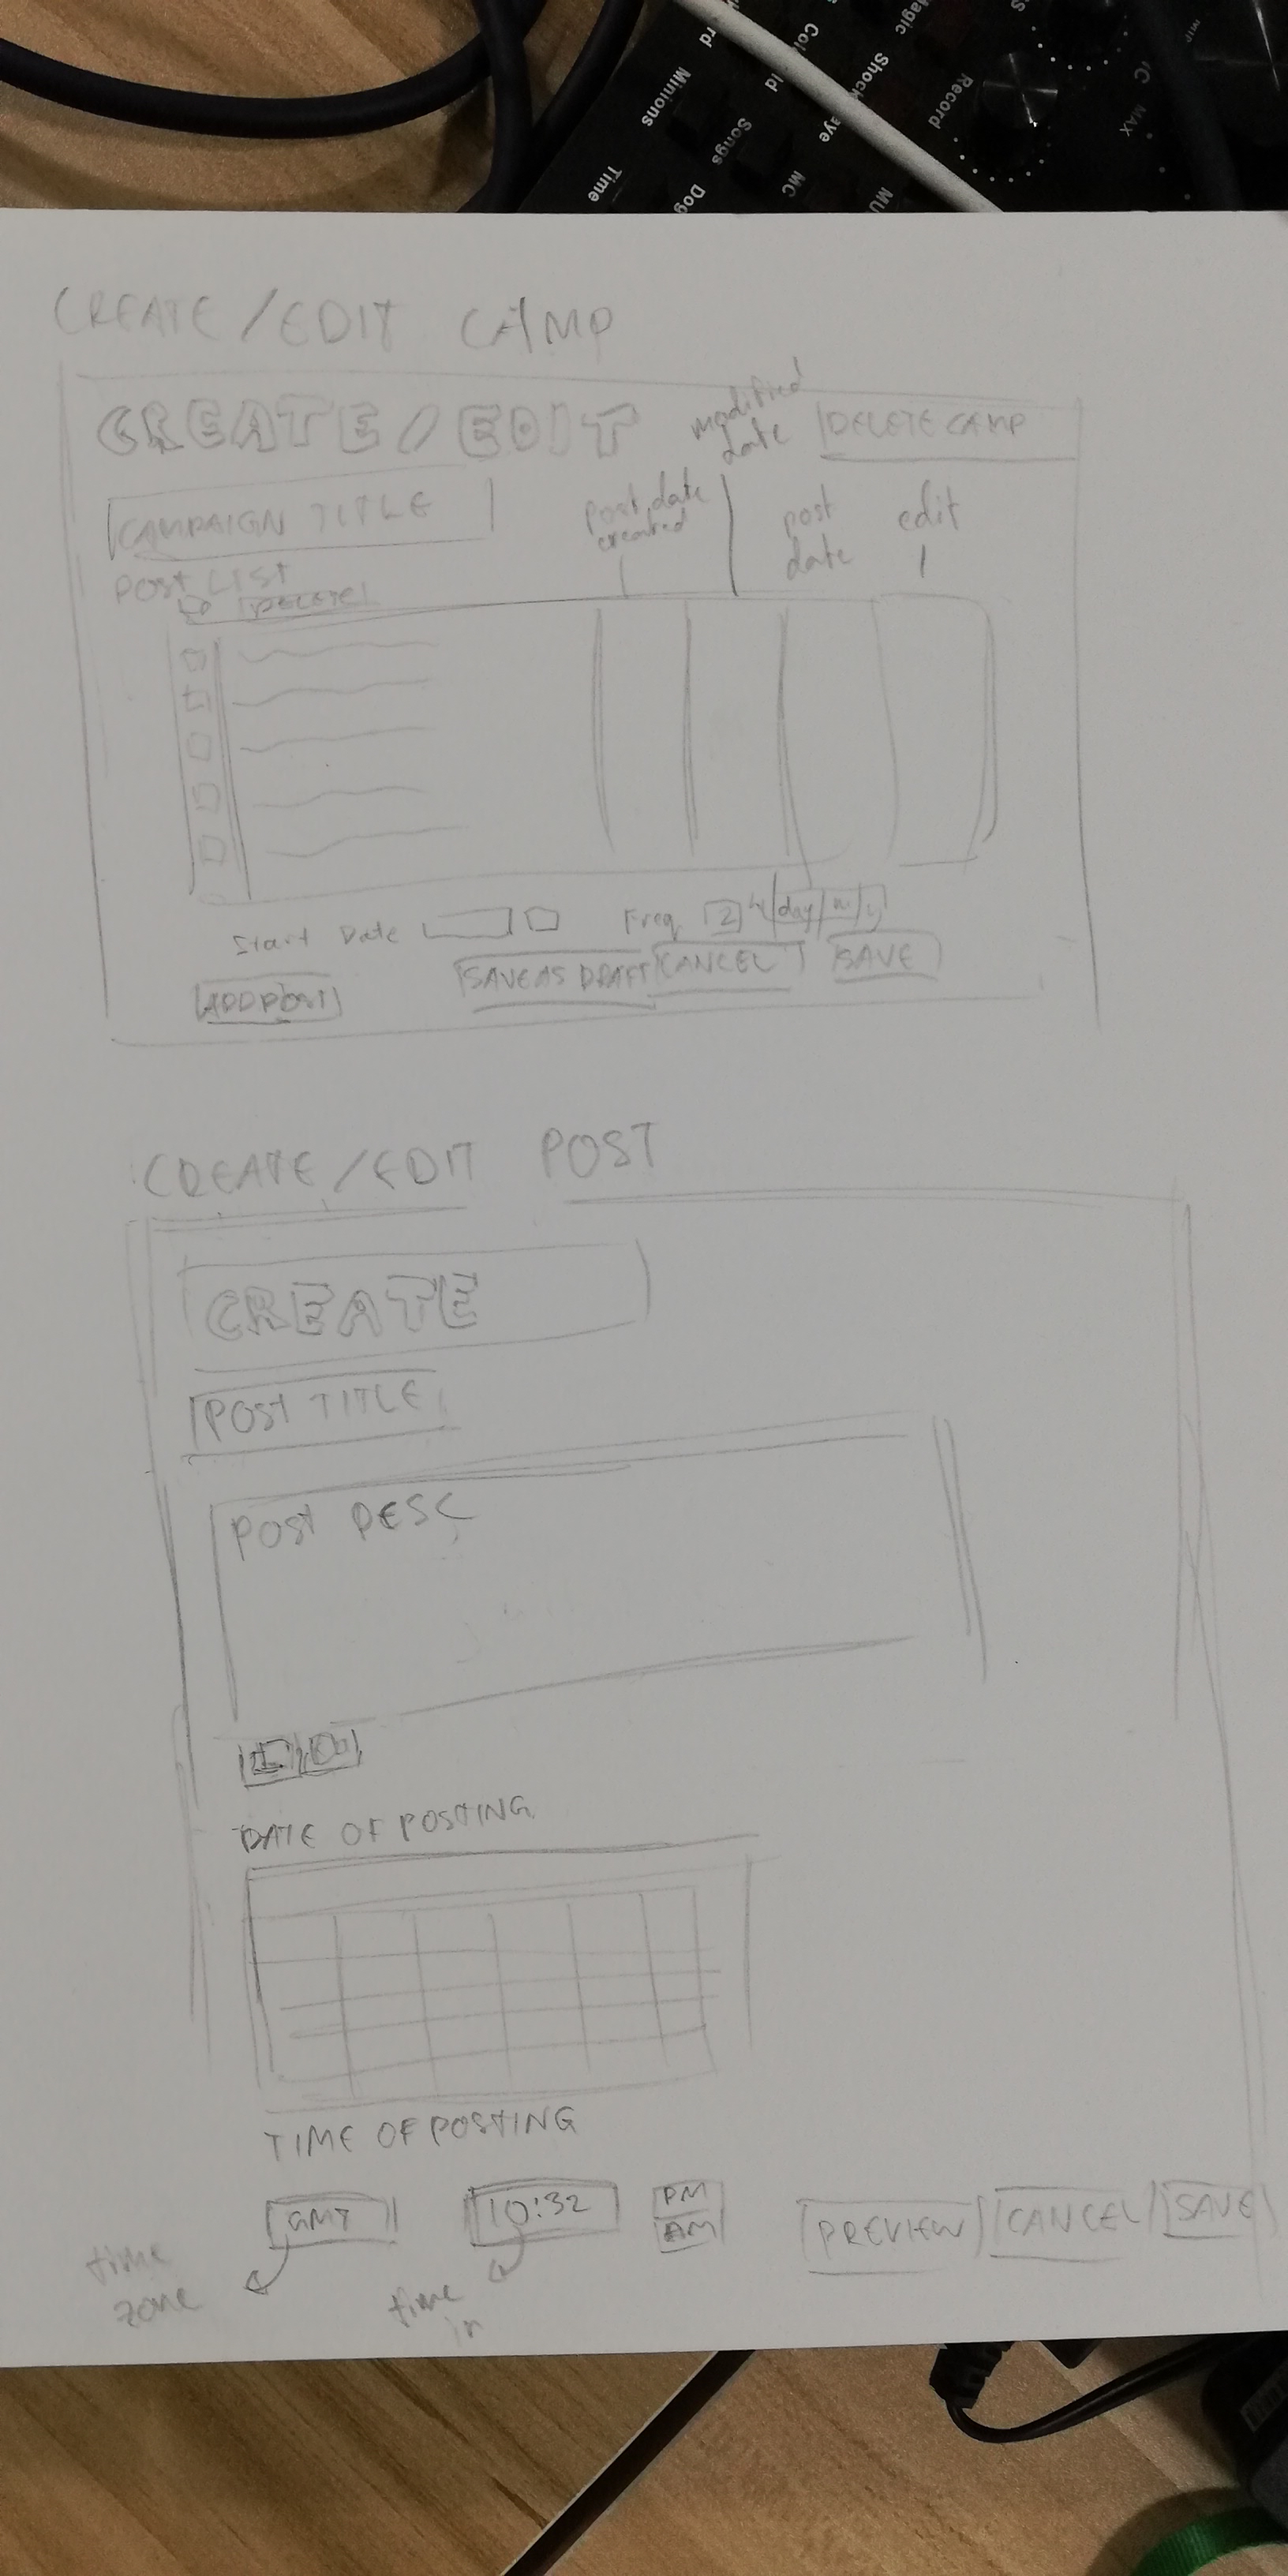 rd
Minions
Time
Songs
Dog
ld
MC
Shock
aye
Record
MU
MAX
CREATE/EDIT CAMP
CREATE/EDIT
modified
date
DELETE CAMP
CAMPAIGN TITLE
post date
created
post
date
edit
POST LIST
DELETE
Start Date
Freq 2 day
SAVE AS DRAFT CANCEL SAVE
ADD POST
CREATE/EDIT POST
CREATE
POST TITLE
POST DESC
DATE OF POSTING
TIME OF POSTING
GMT 10:32 PM
AM
PREVIEW CANCEL SAVE
time
zone
time
in